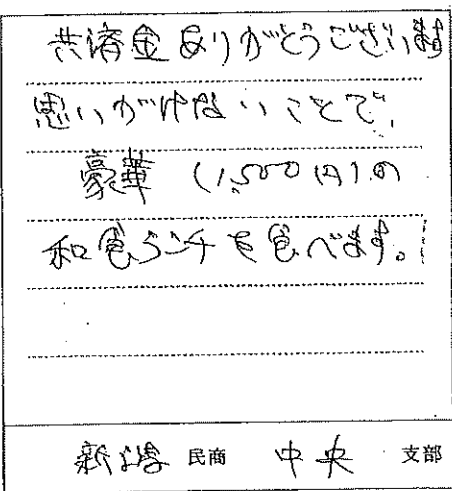 共済金ありがとうございます
思いがけないことで、
豪華（1,500円）の
和食ランチを食べます。
新潟 民商 中央 支部